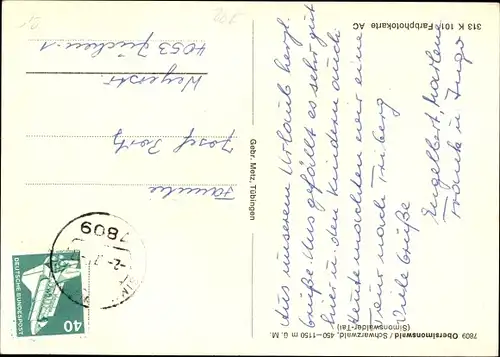 313 K 101 Farbphotokarte AC
Aus unserem Urlaub herzl.
Grüße. Uns gefällt es sehr gut
hier u. den Kindern auch
Heute machten wir eine
Tour nach Triberg
Viele Grüße
Engelbert, Marlene
Frank u. Ingo
7809 Obersimonswald / Schwarzwald, 450–1150 m ü. M.
(Simonswälder-Tal)
Gebr. Metz, Tübingen
Familie
Josef
Weyerstr.
4053 Jüchen 1
7809
DEUTSCHE BUNDESPOST
40